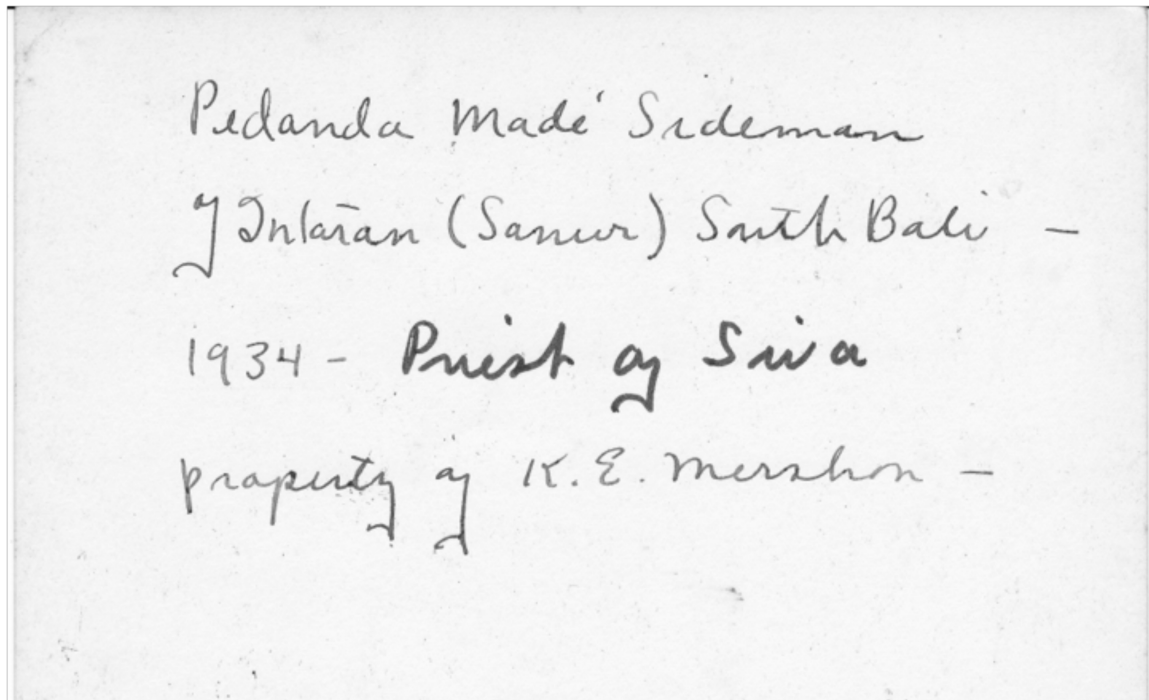 Pedanda Madé Sideman
of Intaran (Sanur) South Bali –
1934 - Priest of Siva
property of K.E. Mershon –